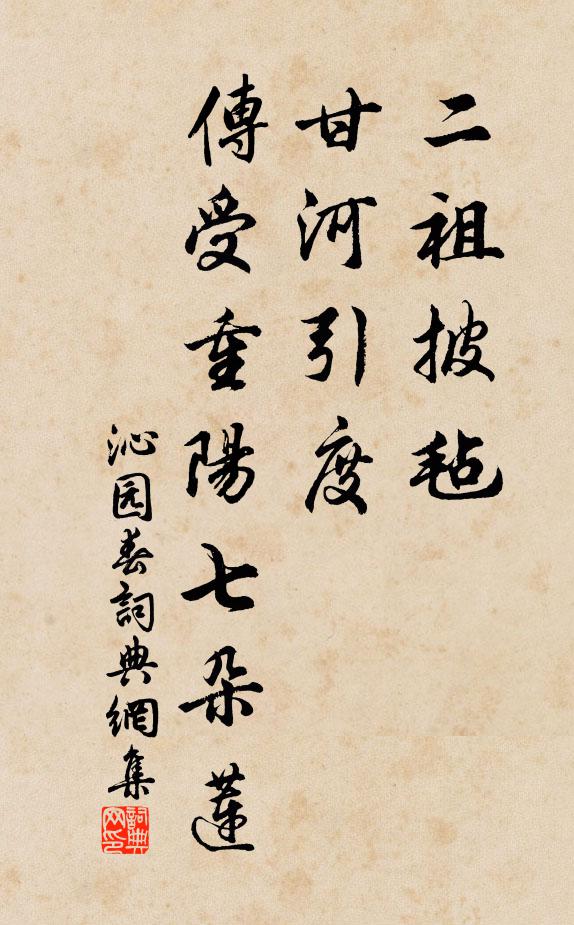 二祖披毡
甘河引度
傳受重陽七朵蓮
沁园春詞典網集
詞典网印